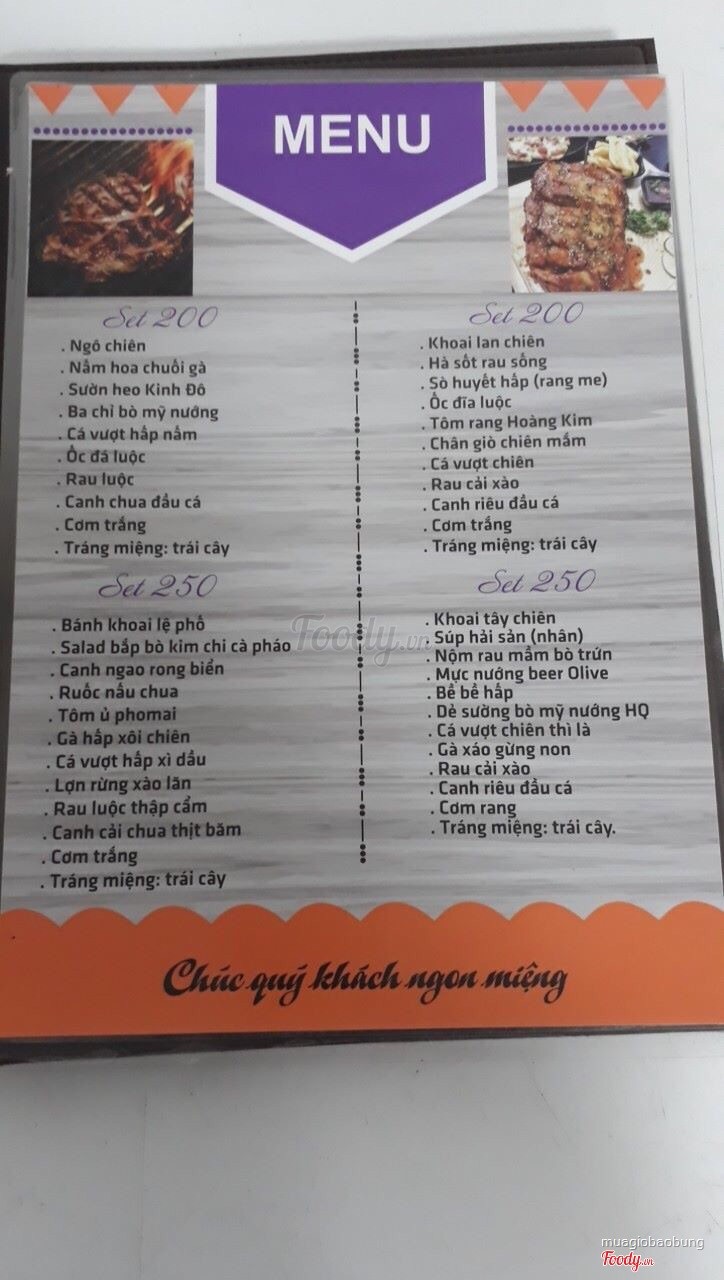 MENU
Set 200
. Ngô chiên
. Nấm hoa chuối gà
. Sườn heo Kinh Đô
. Ba chỉ bò mỹ nướng
. Cá vượt hấp nấm
. Ốc đá luộc
. Rau luộc
. Canh chua đầu cá
. Cơm trắng
. Tráng miệng: trái cây
Set 250
. Bánh khoai lệ phố
. Salad bắp bò kim chi cà pháo
. Canh ngao rong biển
. Ruốc nấu chua
. Tôm ủ phomai
. Gà hấp xôi chiên
. Cá vượt hấp xì dầu
. Lợn rừng xào lăn
. Rau luộc thập cẩm
. Canh cải chua thịt băm
. Cơm trắng
. Tráng miệng: trái cây
Set 200
. Khoai lan chiên
. Hà sốt rau sống
. Sò huyết hấp (rang me)
. Ốc đĩa luộc
. Tôm rang Hoàng Kim
. Chân giò chiên mắm
. Cá vượt chiên
. Rau cải xào
. Canh riêu đầu cá
. Cơm trắng
. Tráng miệng: trái cây
Set 250
. Khoai tây chiên
. Súp hải sản (nhân)
. Nộm rau mầm bò trứn
. Mực nướng beer Olive
. Bề bề hấp
. Dẻ sường bò mỹ nướng HQ
. Cá vượt chiên thì là
. Gà xáo gừng non
. Rau cải xào
. Canh riêu đầu cá
. Cơm rang
. Tráng miệng: trái cây.
Foody.vn
Chúc quý khách ngon miệng
muagiobaobung
Foody.vn